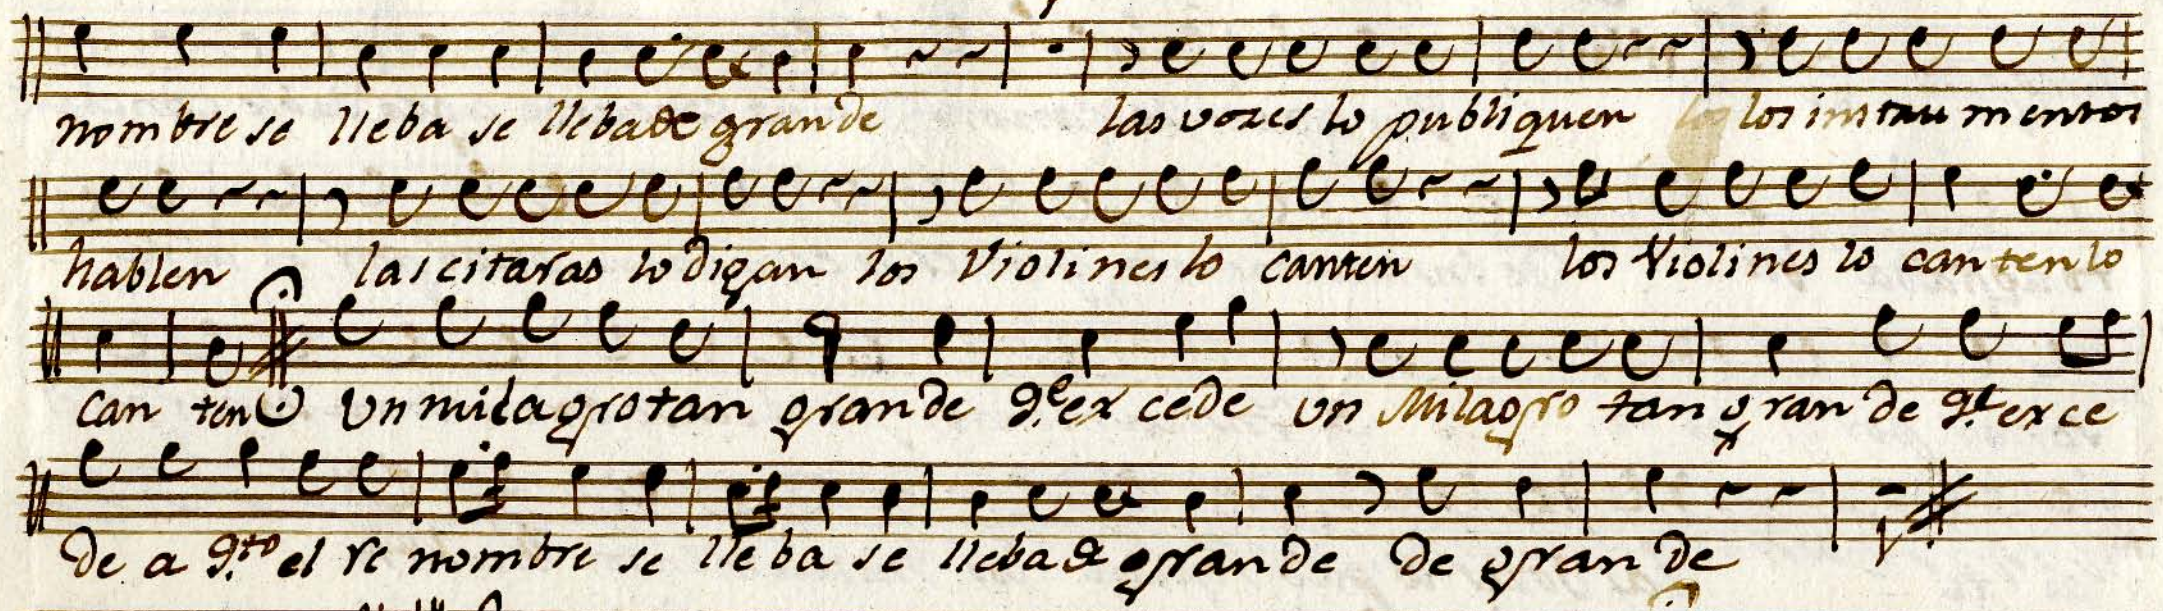 nombre se lleba se lleba de grande las vozes lo publiquen los instrumentos
hablen las citaras lo digan los Violines lo canten los Violines lo canten lo
can ten Un milagro tan grande q.e ex cede un Milagro tan gran de q.e ex ce
de a q.to el re nombre se lle ba se lleba de gran de de gran de